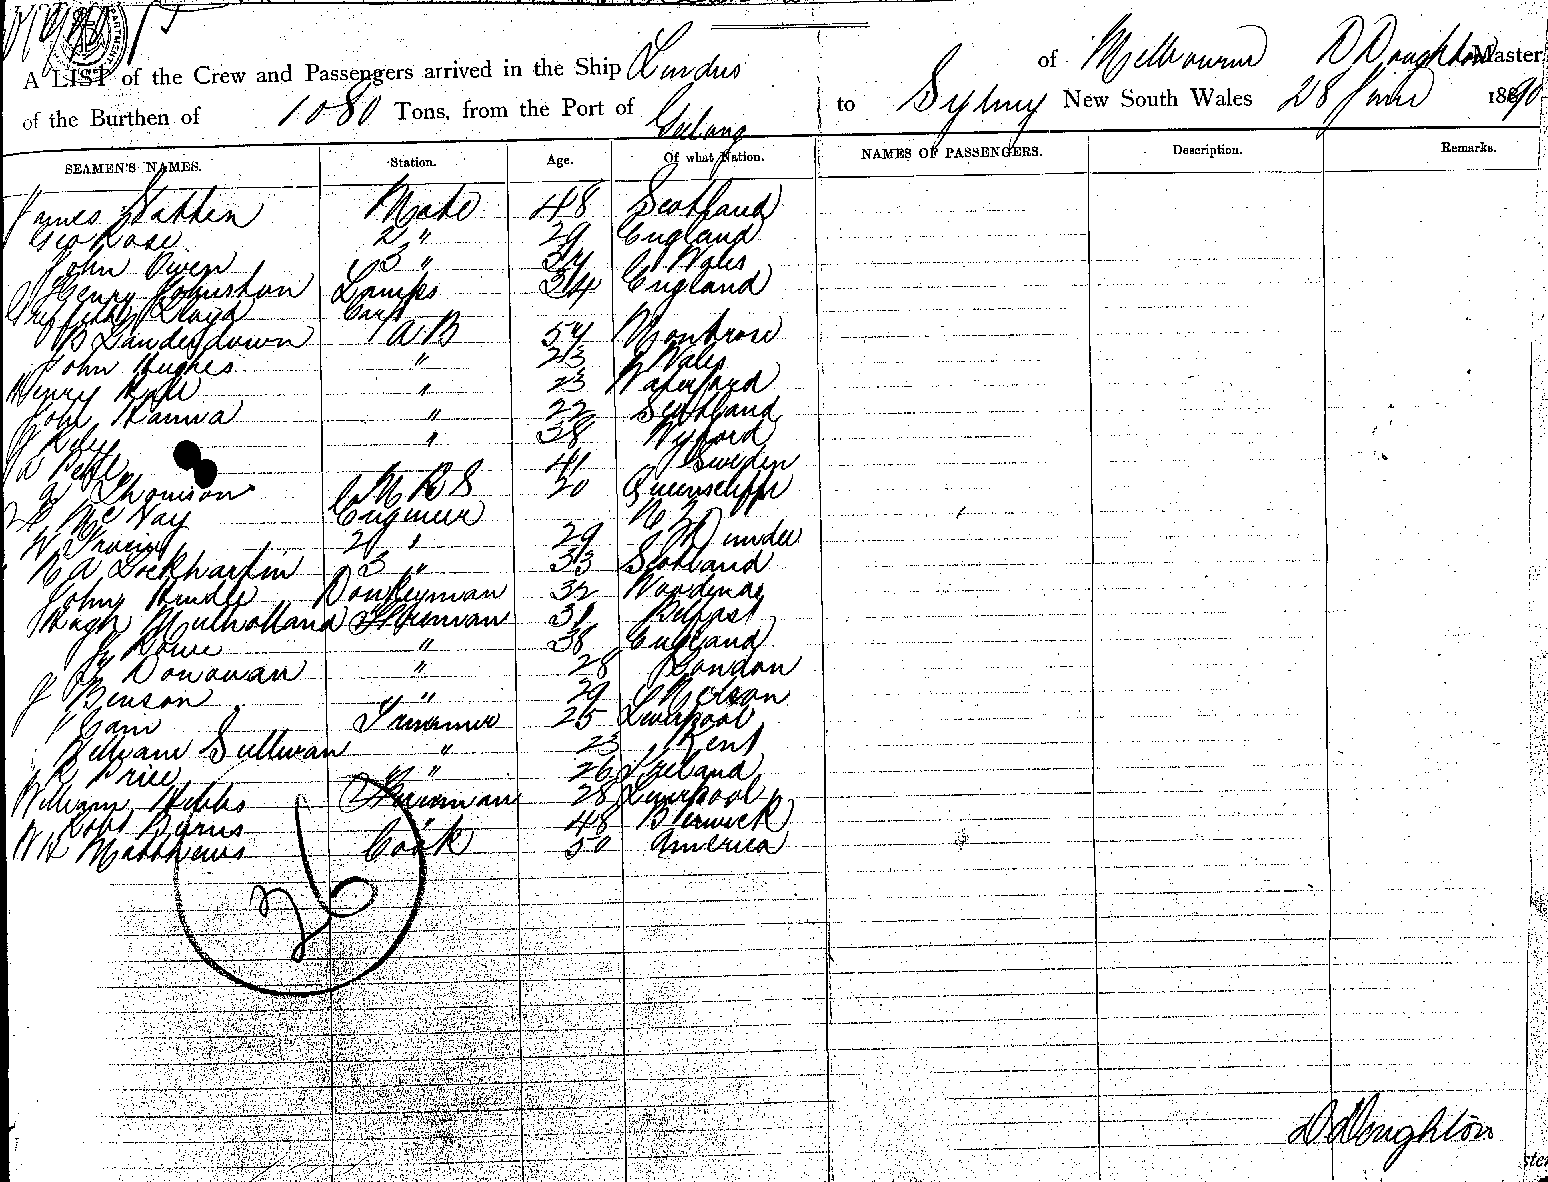 A LIST of the Crew and Passengers arrived in the Ship Lindus of Melbourne D Doughton Master
of the Burthen of 1080 Tons, from the Port of Geelong to Sydney New South Wales 28 June 1890
SEAMEN'S NAMES. Station. Age. Of what Nation. NAMES OF PASSENGERS. Description. Remarks.
James Mate 48 Scotland
Geo Rose 2 " 29 England
John Owen 3 " Wales
Henry Johnston Lamps 34 England
Griffith Lloyd Carp
Landsdown A B 54 Montrose
John Hughes " 23 Wales
Henry " 23 Waterford
John Hanna " 22 Scotland
Riley " 38 Wexford
41 Sweden
Thomson M R S 20 Queenscliffe
Mc Vay Engineer N Z
W 2 " 29 Dundee
Lockhart 3 " 33 Scotland
John Hindle Donkeyman 32
Hugh Mulholland Fireman 31 Belfast
J Lowe " 38 England
Donovan " 28 London
J Benson " 29 Nelson
Cam Trimmer 25 Liverpool
William Sullivan " 23 Kent
R Price " " 26 Ireland
William Hibbs Fireman 28 Liverpool
Robt Burns " 48 Berwick
Wm Matthews Cook 50 America
26
D Doughton